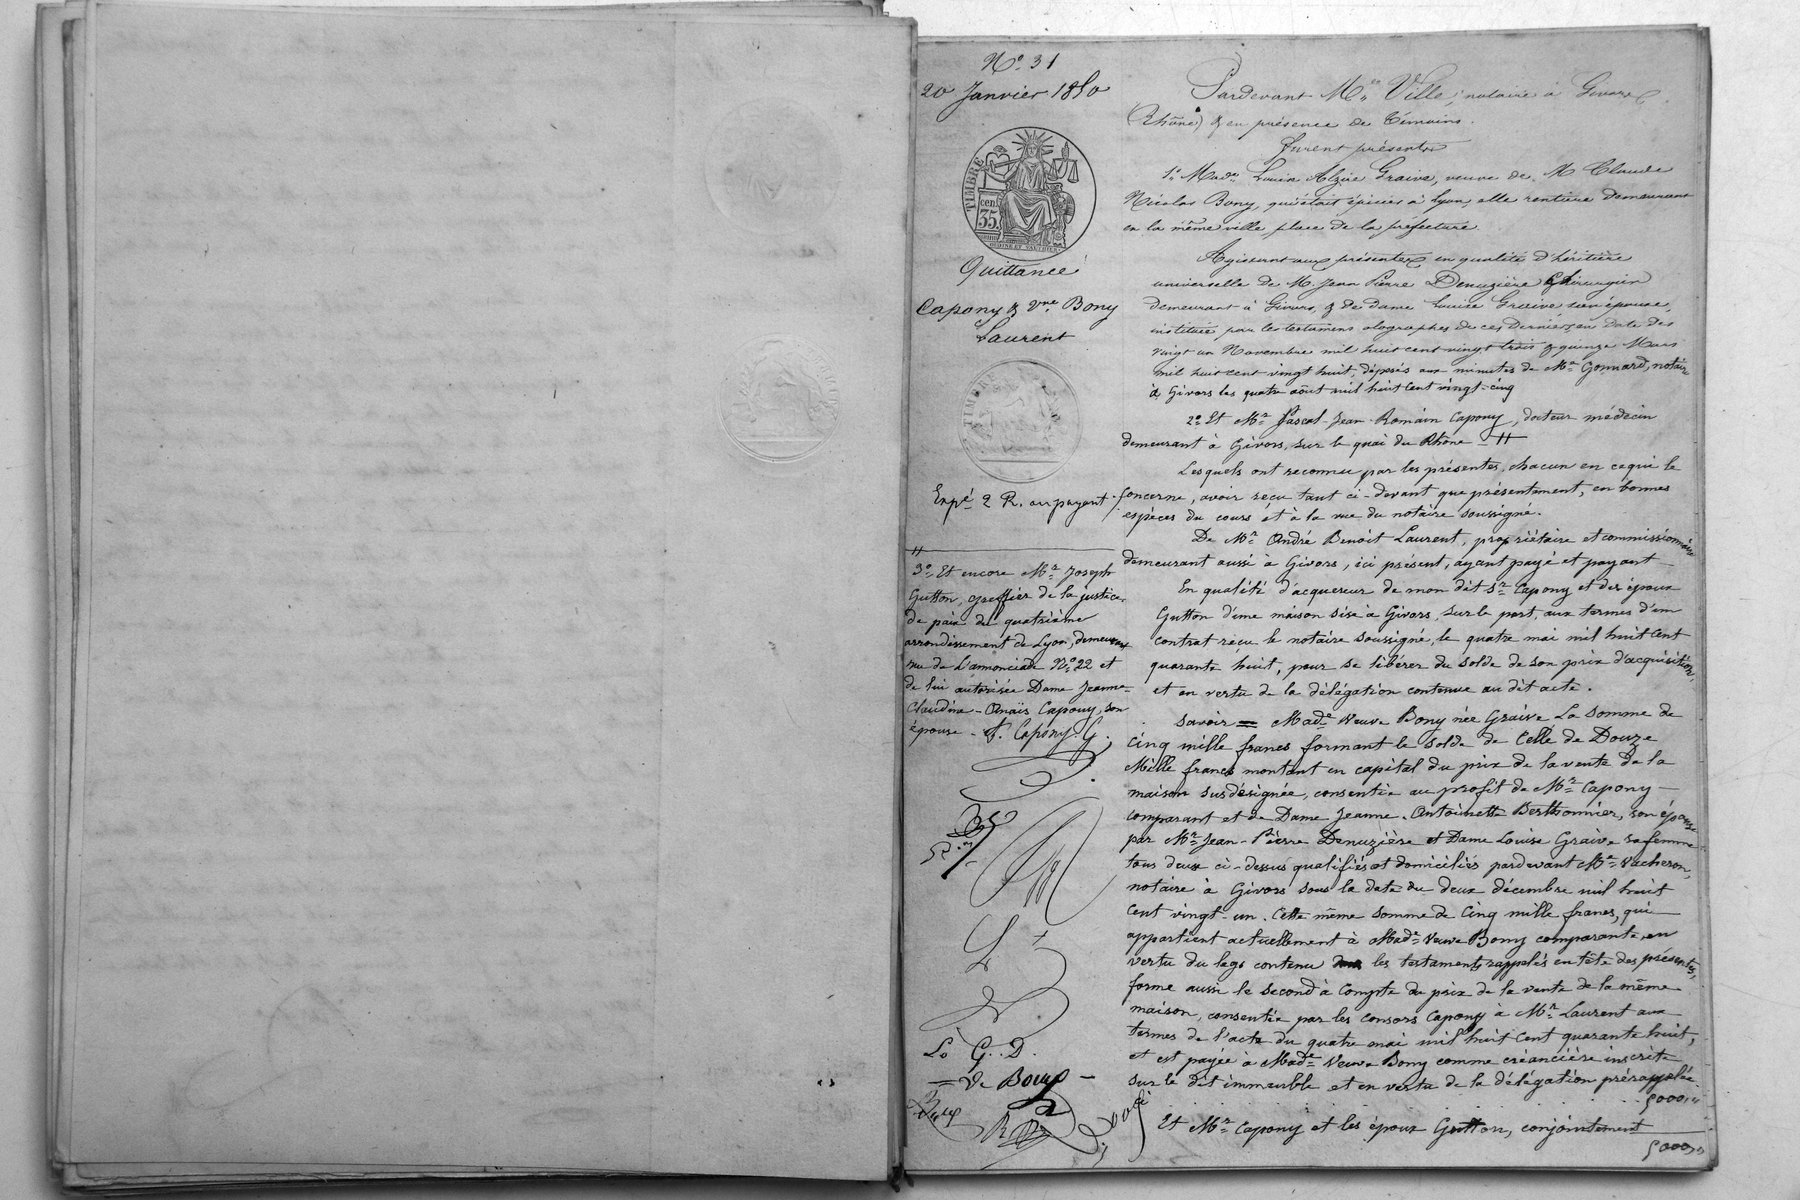 N° 31
20 Janvier 1850
TIMBRE
35 cent
Quittance
Capony & Vve Bony
Laurent
Expé 2 R. au payant
3° Et encore Mr Joseph
Gutton, greffier de la justice
de paix du quatrième
arrondissement de Lyon, demeurant
rue de l'annonciade N° 22 et
de lui autorisée Dame Jeanne-
Claudine-Anaïs Capony, son
épouse. A. Capony. G.
L. G. D.
Ve Bony
Pardevant Me Ville, notaire à Givors
(Rhône) & en présence de témoins.
Furent présents
1° Made Louise Alzire Graive, veuve de M Claude
Nicolas Bony, qui était épicier à Lyon, elle rentière demeurant
en la même ville place de la préfecture
Agissant aux présentes en qualité d'héritière
universelle de M. Jean Pierre Denuzière Chirurgien
demeurant à Givors, & de dame Louise Graive son épouse,
instituée par les testamens olographes de ces derniers au date des
vingt un Novembre mil huit cent vingt trois & quinze Mars
mil huit cent vingt huit, déposés aux minutes de Me Gonnard, notaire
à Givors les quatre août mil huit cent vingt-cinq
2° Et Mr Pascal-Jean-Romain Capony, docteur médecin
demeurant à Givors, sur le quai du Rhône - //
Lesquels ont reconnu par les présentes, chacun en ce qui le
concerne, avoir reçu tant ci-devant que présentement, en bonnes
espèces du cours et à la vue du notaire soussigné.
De Mr André Benoit Laurent, propriétaire et commissionnaire
demeurant aussi à Givors, ici présent, ayant payé et payant
En qualité d'acquereur de mon dit Sr Capony et des époux
Gutton d'une maison sise à Givors, sur le port, aux termes d'un
contrat reçu le notaire soussigné, le quatre mai mil huit cent
quarante huit, pour se libérer du solde de son prix d'acquisition,
et en vertu de la délégation contenue au dit acte.
Savoir = Made Veuve Bony née Graive La somme de
Cinq mille francs formant le solde de Celle de Douze
Mille francs montant en capital du prix de la vente de la
maison susdésignée, consentie au profit de Mr Capony
comparant et de Dame Jeanne-Antoinette Berthonnier, son épouse
par Mr Jean-Pierre Denuzière et Dame Louise Graive sa femme
tous deux ci-dessus qualifiés et domiciliés pardevant Me Vacheron,
notaire à Givors sous la date du deux décembre mil huit
cent vingt-un. Cette même somme de Cinq mille francs, qui
appartient actuellement à Made Veuve Bony comparante, en
vertu du legs contenu les testaments rappelés en tête des présentes,
forme aussi le second à Compte du prix de la vente de la même
maison, consentie par les consors Capony à Mr Laurent aux
termes de l'acte du quatre mai mil huit Cent quarante huit,
et est payée à Made Veuve Bony comme créancière inscrite
sur le dit immeuble et en vertu de la délégation prérappelée.
5000,"
Et Mr Capony et les époux Gutton, conjointement
5000,"